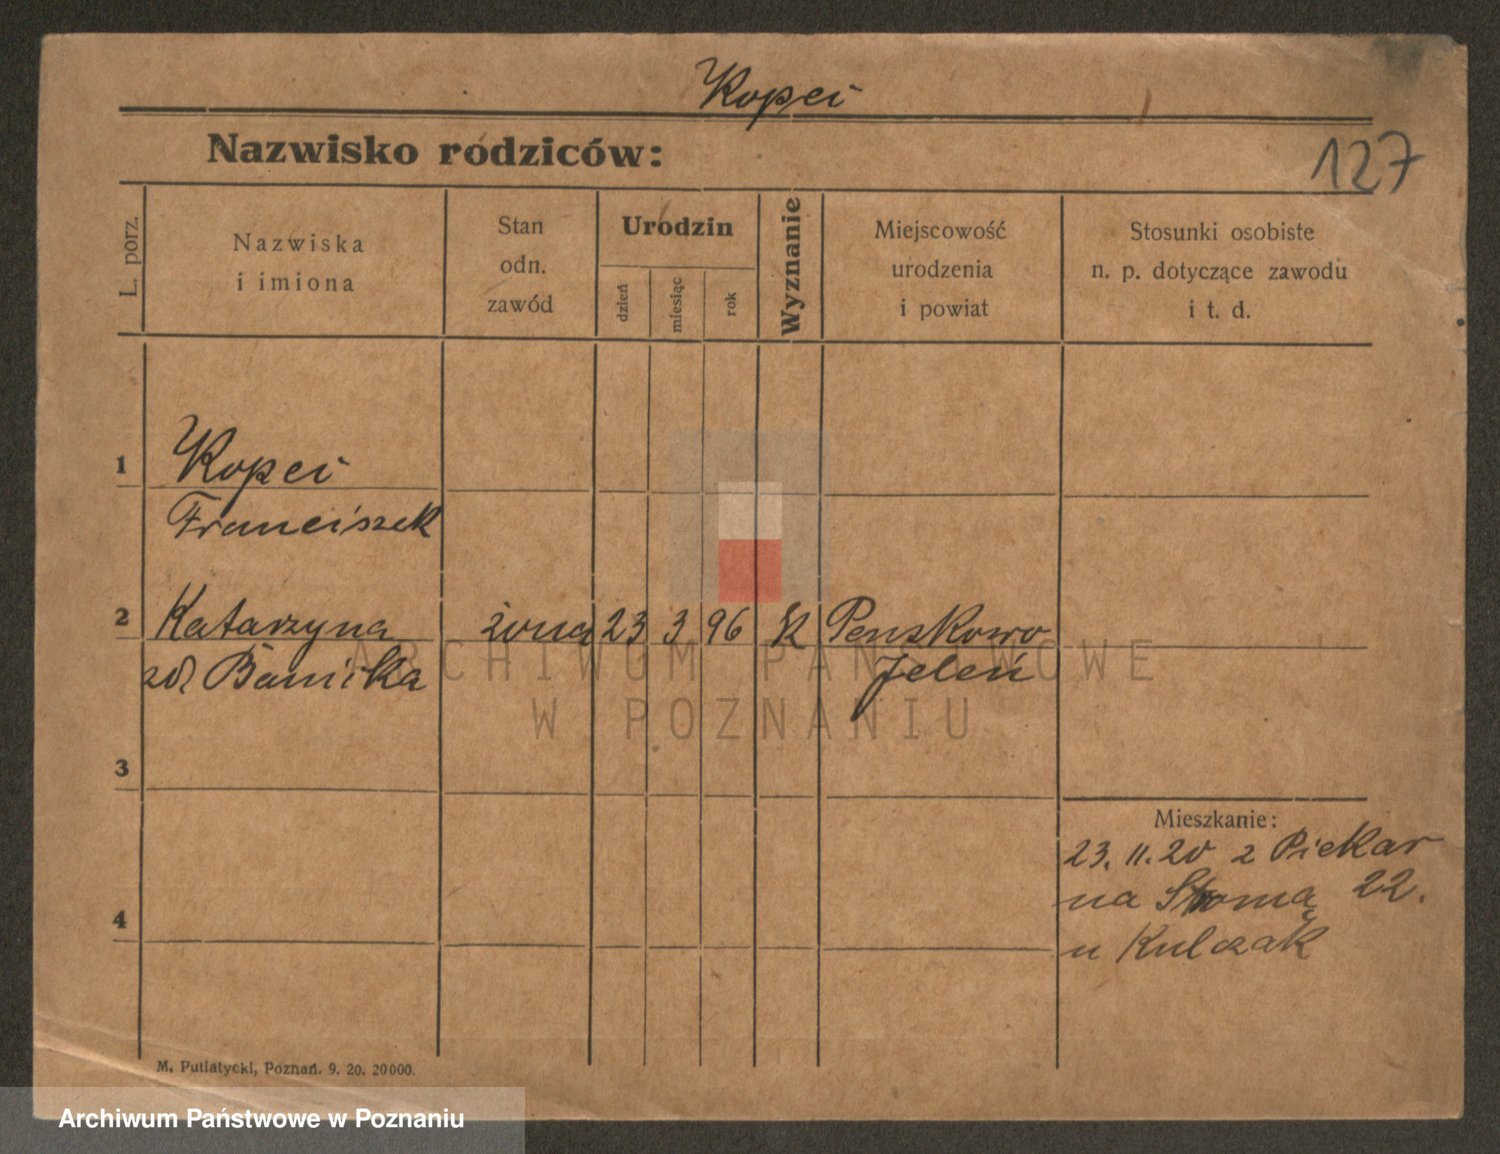 Kopei
Nazwisko rodziców:
127
L. porz.
Nazwiska
i imiona
Stan
odn.
zawód
Urodzin
dzień
miesiąc
rok
Wyznanie
Miejscowość
urodzenia
i powiat
Stosunki osobiste
n. p. dotyczące zawodu
i t. d.
1
Kopei
Franciszek
2
Katarzyna żona 23 3 96 K Penskowo
Jeleń
3
4
Mieszkanie:
23. 11. 20 z Piekar
na 22.
u Kulczak
M. Putiatycki, Poznań. 9. 20. 20000.
ARCHIWUM PAŃSTWOWE
W POZNANIU
Archiwum Państwowe w Poznaniu